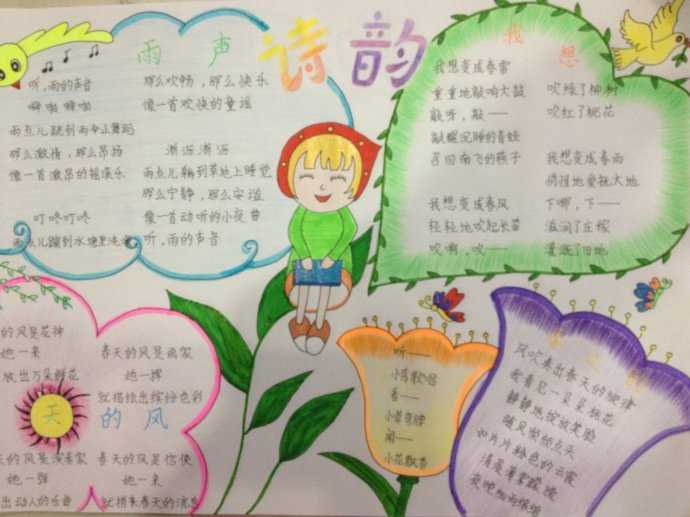 诗韵
雨声
听,雨的声音
噼啪 噼啪
那么激情,那么昂扬
像一首激昂的摇滚乐
叮咚叮咚
那么欢畅,那么快乐
像一首欢快的童谣
淅沥淅沥
雨点儿躺到草地上睡觉
那么宁静,那么安谧
像一首动听的小夜曲
听,雨的声音
我想
我想变成春雷
重重地敲响大鼓
敲呀,敲——
敲醒沉睡的青蛙
召回南飞的燕子
我想变成春风
轻轻地吹起长笛
吹啊,吹——
吹绿了柳树
吹红了桃花
我想变成春雨
下哪,下——
滋润了庄稼
灌溉了田地
天的风
的风是花神
她一来
放出万朵鲜花
春天的风是画家
她一挥
就描绘出缤纷色彩
的风是演奏家
她一弹
出动人的乐曲
春天的风是信使
她一来
就捎来春天的消息
听——
小鸟歌唱
看——
小草弯腰
闻——
小花飘香
风吹奏出春天的旋律
我看见一朵朵桃花
静静地绽放笑脸